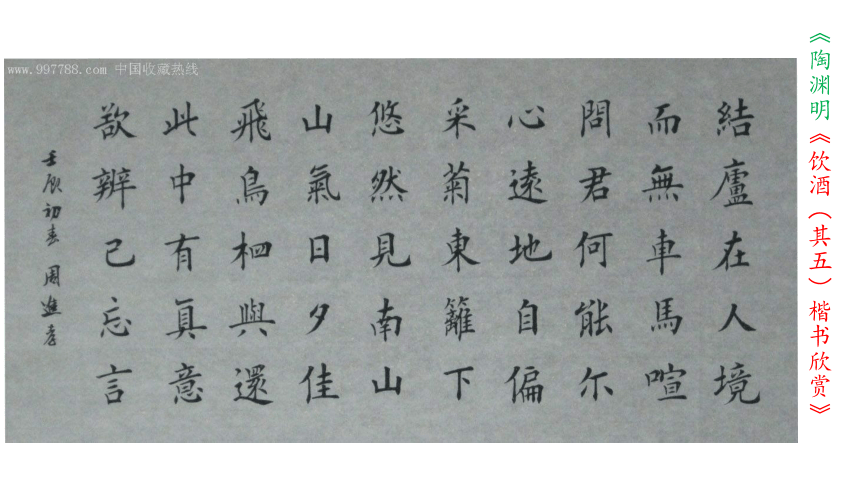 《陶渊明《饮酒（其五）楷书欣赏》
www.997788.com 中国收藏热线
結廬在人境
而無車馬喧
問君何能尓
心遠地自偏
采菊東籬下
悠然見南山
山氣日夕佳
飛鳥相與還
此中有真意
欲辨已忘言
壬辰初春 周進